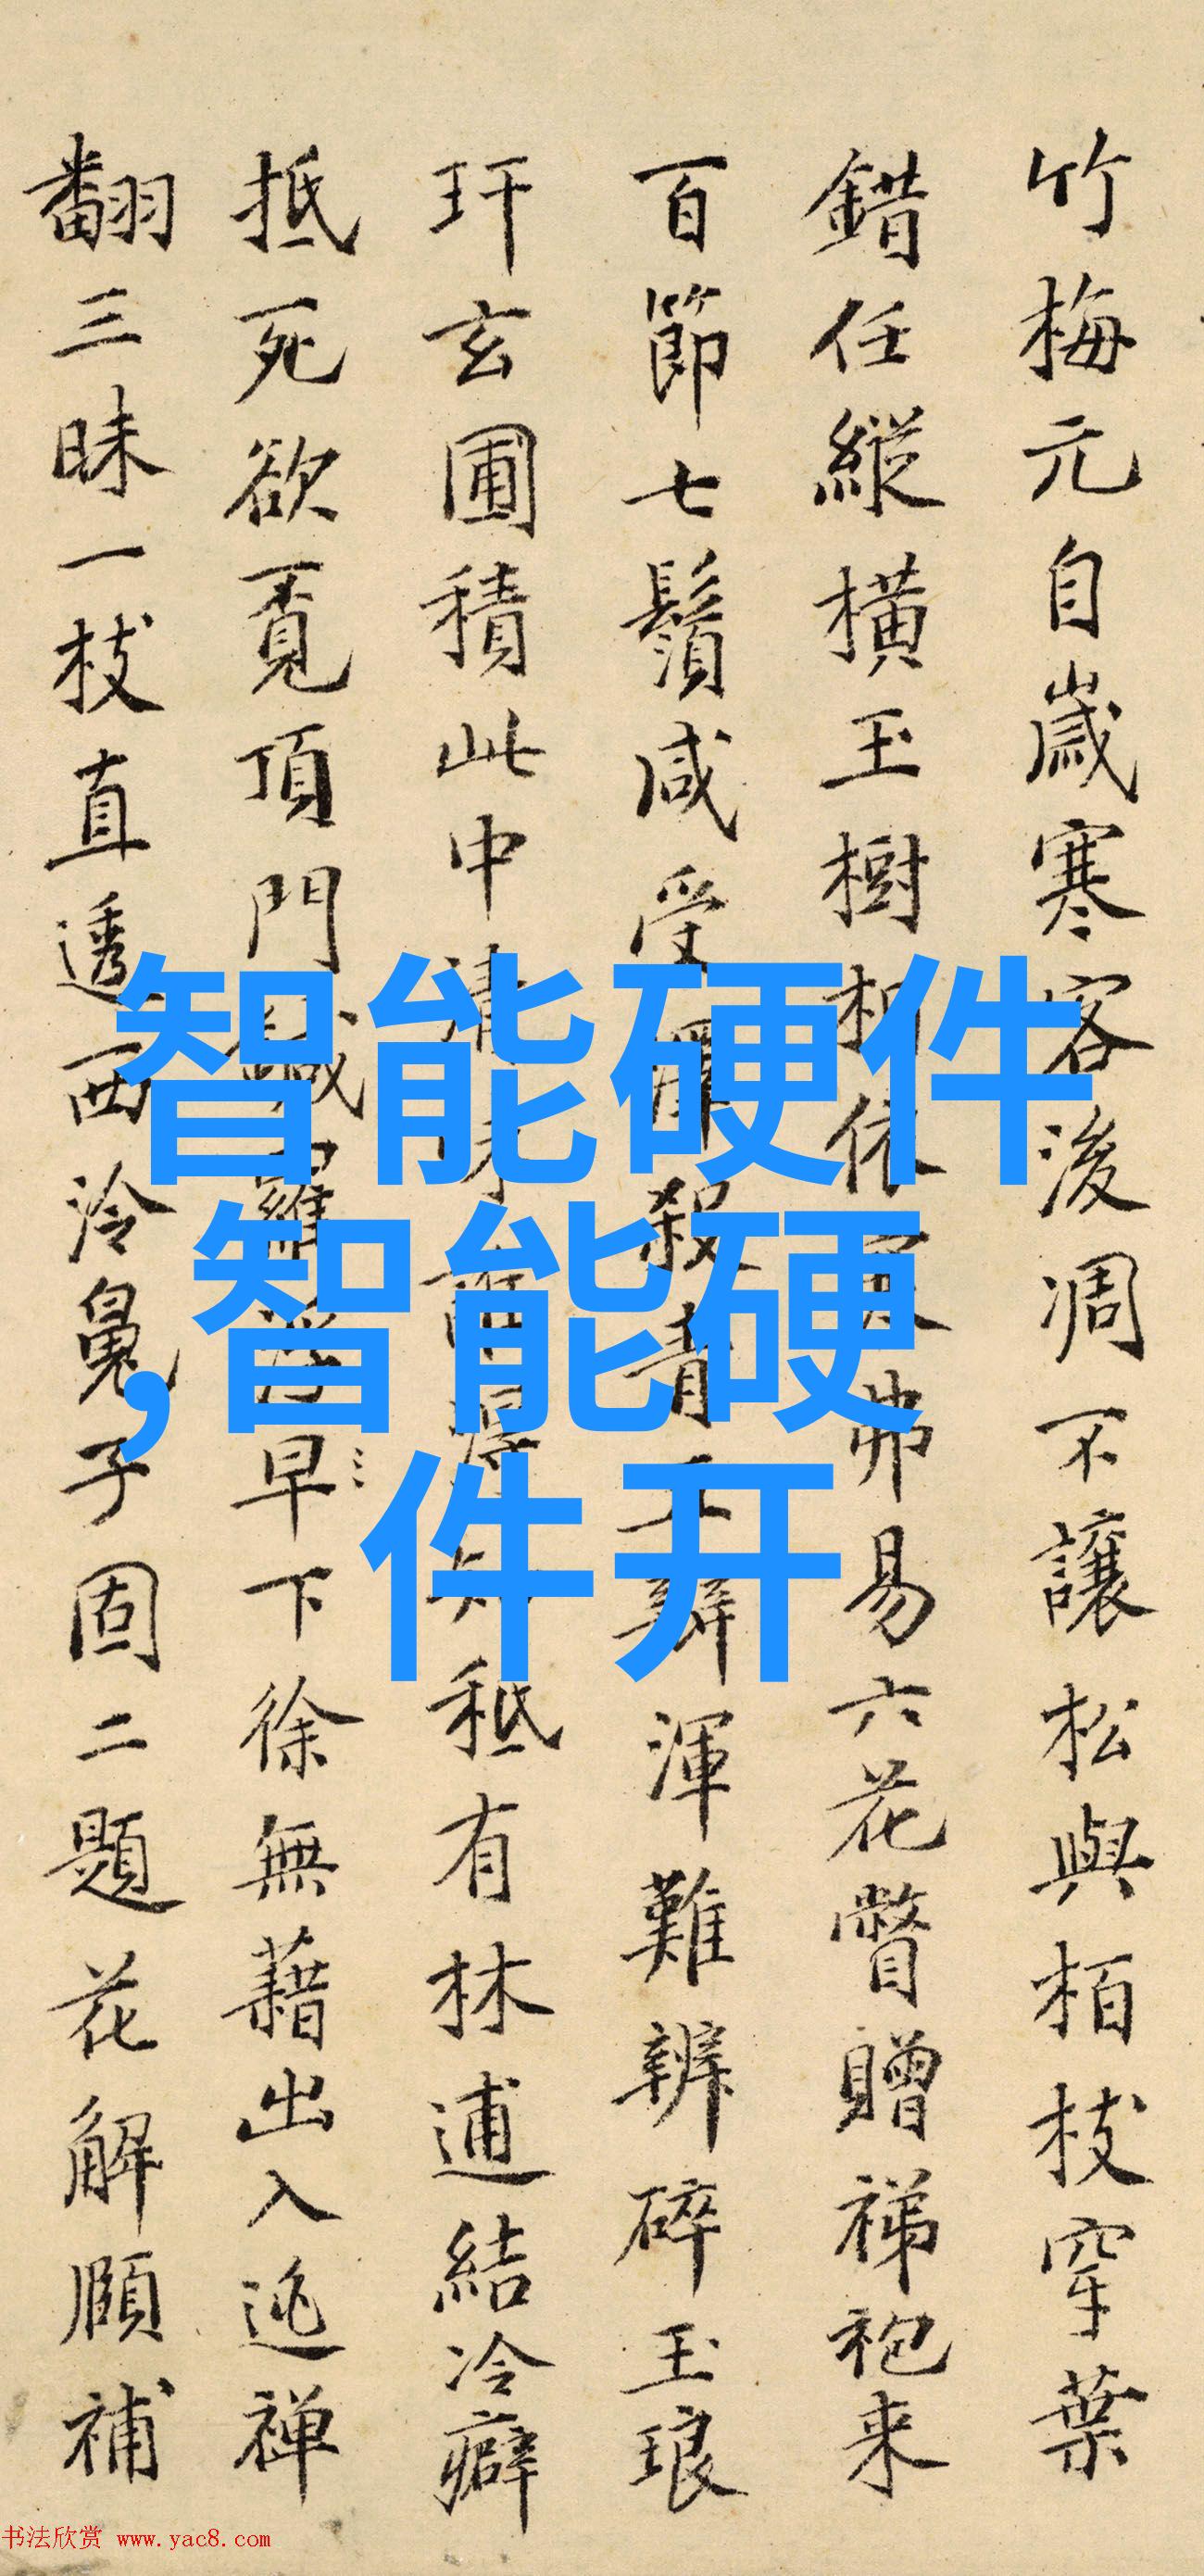 竹梅元自歲寒客後凋不讓松與栢枝穿葉
錯任縱橫玉樹相依 弗易六花瞥贈祶袍来
百節七鬚咸受 殺青 渾難辨碎玉琅
玕玄圃積此中清 有林逋結冷癖
抵死欲覔頂門鍼羅浮早下徐無藉出入逃禅
翻三昧一枝直透西泠鼻子固二題花解頤補
智能硬件
,智能硬
件开
书法欣赏 www.yac8.com